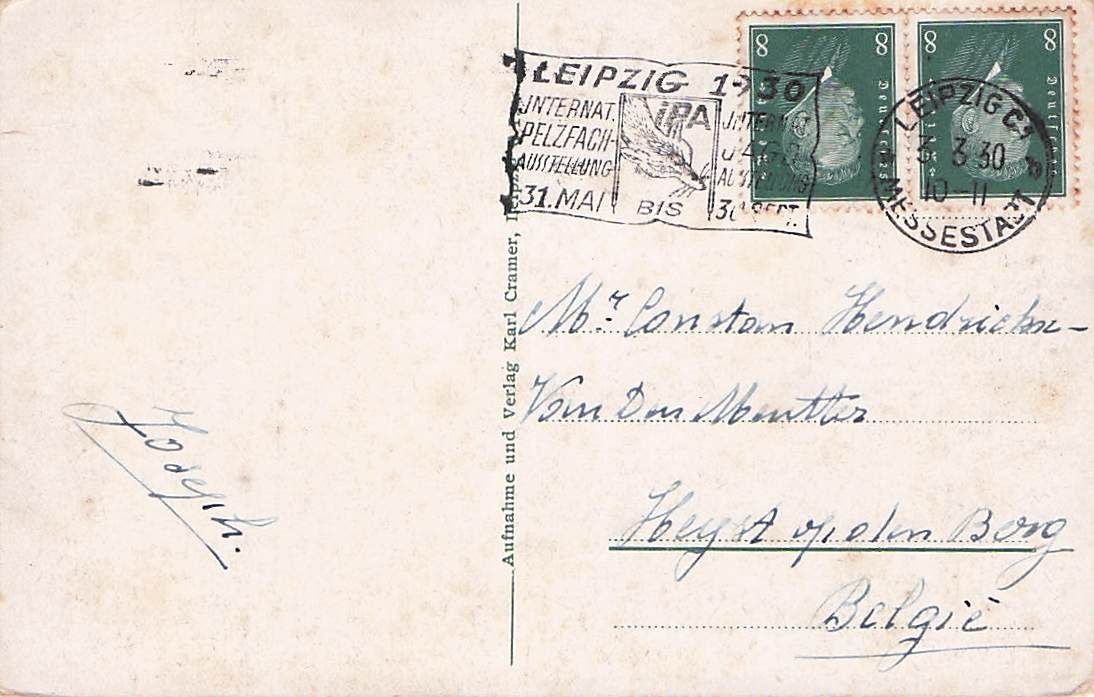 8 8 8 8
Deutsches Reich
Deutsches Reich
LEIPZIG 1930
INTERNAT.
PELZFACH-
AUSSTELLUNG
31. MAI
iPA
BIS
INTERNAT.
JAGD
AUSSTELLUNG
30 SEPT.
LEIPZIG C1
3 3 30
10-11
MESSESTADT
Mr. Constan Hendrickx-
Van Den
Heyst op den Berg
België
Joseph.
Aufnahme und Verlag Karl Cramer,